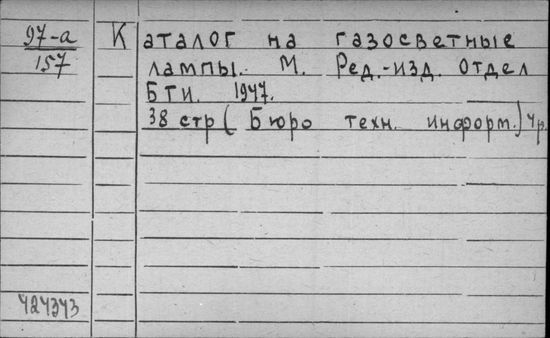 97-а
157
Каталог на газосветные
лампы. М. Ред.-изд. отдел
БТИ. 1947.
38 стр (Бюро техн. информ.) 4 р.
424343